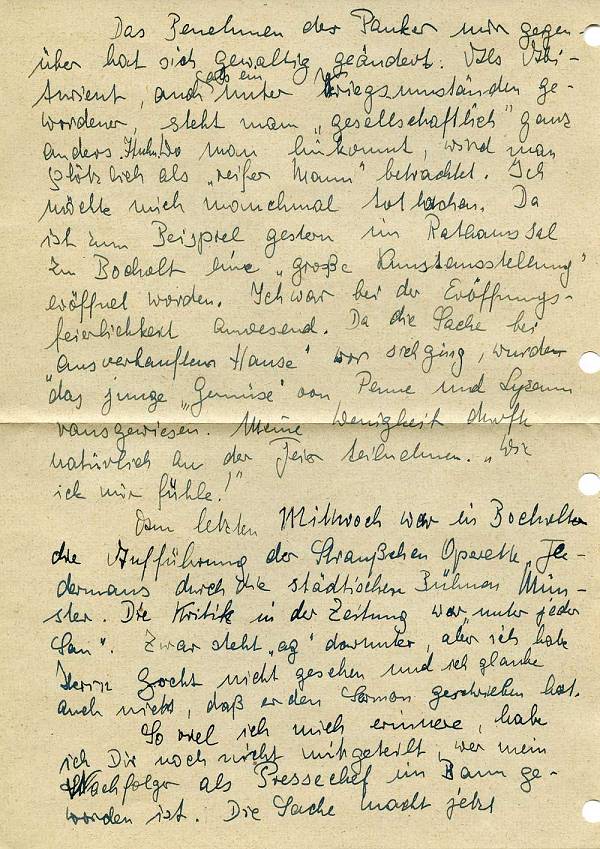 Das Benehmen der Pauker mir gegen-
über hat sich gewaltig geändert. Als Abi-
turient, auch unter Kriegsumständen ge-
wordener, steht man „gesellschaftlich" ganz
anders. Wo man hinkommt, wird man
plötzlich als „reifer Mann" betrachtet. Ich
möchte mich manchmal tot lachen. Da
ist zum Beispiel gestern im Rathaussaal
zu Bocholt eine „große Kunstausstellung"
eröffnet worden. Ich war bei der Eröffnungs-
feierlichkeit anwesend. Da die Sache bei
„ausverkauftem Hause" vor sich ging, wurde
das junge „Gemüse" von Penne und Lyzeum
rausgewiesen. Meine Wenigkeit durfte
natürlich an der Feier teilnehmen. „Wie
ick mir fühle!"
Am letzten Mittwoch war in Bocholt
die Aufführung der Straußschen Operette „Fle-
dermaus" durch die städtischen Bühnen Mün-
ster. Die Kritik in der Zeitung war „unter jeder
Sau". Zwar steht „ag" darunter, aber ich habe
Herrn nicht gesehen und ich glaube
auch nicht, daß er den Sermon geschrieben hat.
So viel ich mich erinnere, habe
ich Dir noch nicht mitgeteilt, wer mein
Nachfolger als Pressechef im Bann ge-
worden ist. Die Sache macht jetzt